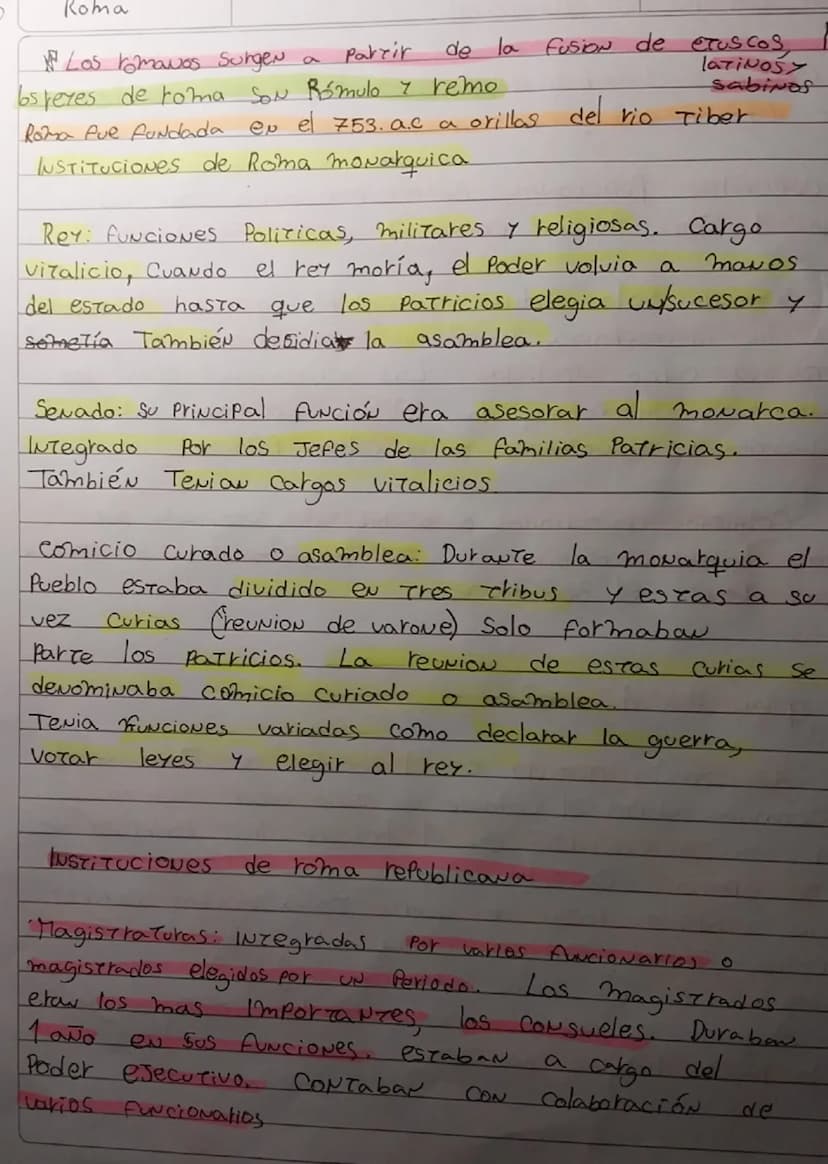 Roma
Los romanos surgen a partir de la fusion de etuscos,
latinos y
sabinos
los reyes de roma son Rómulo y remo
Roma fue fundada en el 753. a.c a orillas del rio Tiber
Instituciones de Roma monarquica
Rey: funciones Politicas, militares y religiosas. Cargo
vitalicio, Cuando el rey moría, el Poder volvia a manos
del estado hasta que los Patricios elegia un sucesor y
sometía También desidia la asamblea.
Senado: su Principal función era asesorar al monarca.
Integrado Por los Jefes de las familias Patricias.
También Tenian Cargos vitalicios
Comicio Curado o asamblea: Durante la monarquia el
Pueblo estaba dividido en Tres Tribus y estas a su
vez Curias (reunion de varone) Solo formaban
Parte los Patricios. La reunion de estas Curias se
denominaba comicio Curiado o asamblea.
Tenia funciones variadas como declarar la guerra,
Votar leyes y elegir al rey.
Instituciones de roma republicana
Magistraturas: Integradas Por varios funcionarios o
magistrados elegidos por un Periodo. Los magistrados
eran los mas Importantes, los Consueles. Duraban
1 año en sus funciones. estaban a cargo del
Poder ejecutivo. Contaban con Colaboración de
varios funcionarios